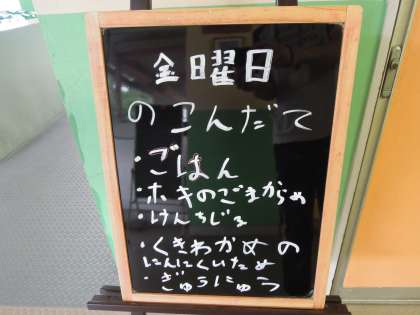 金曜日
のこんだて
・ごはん
・ホキのごまからめ
・けんちじる
・くきわかめの
にんにくいため
・ぎゅうにゅう